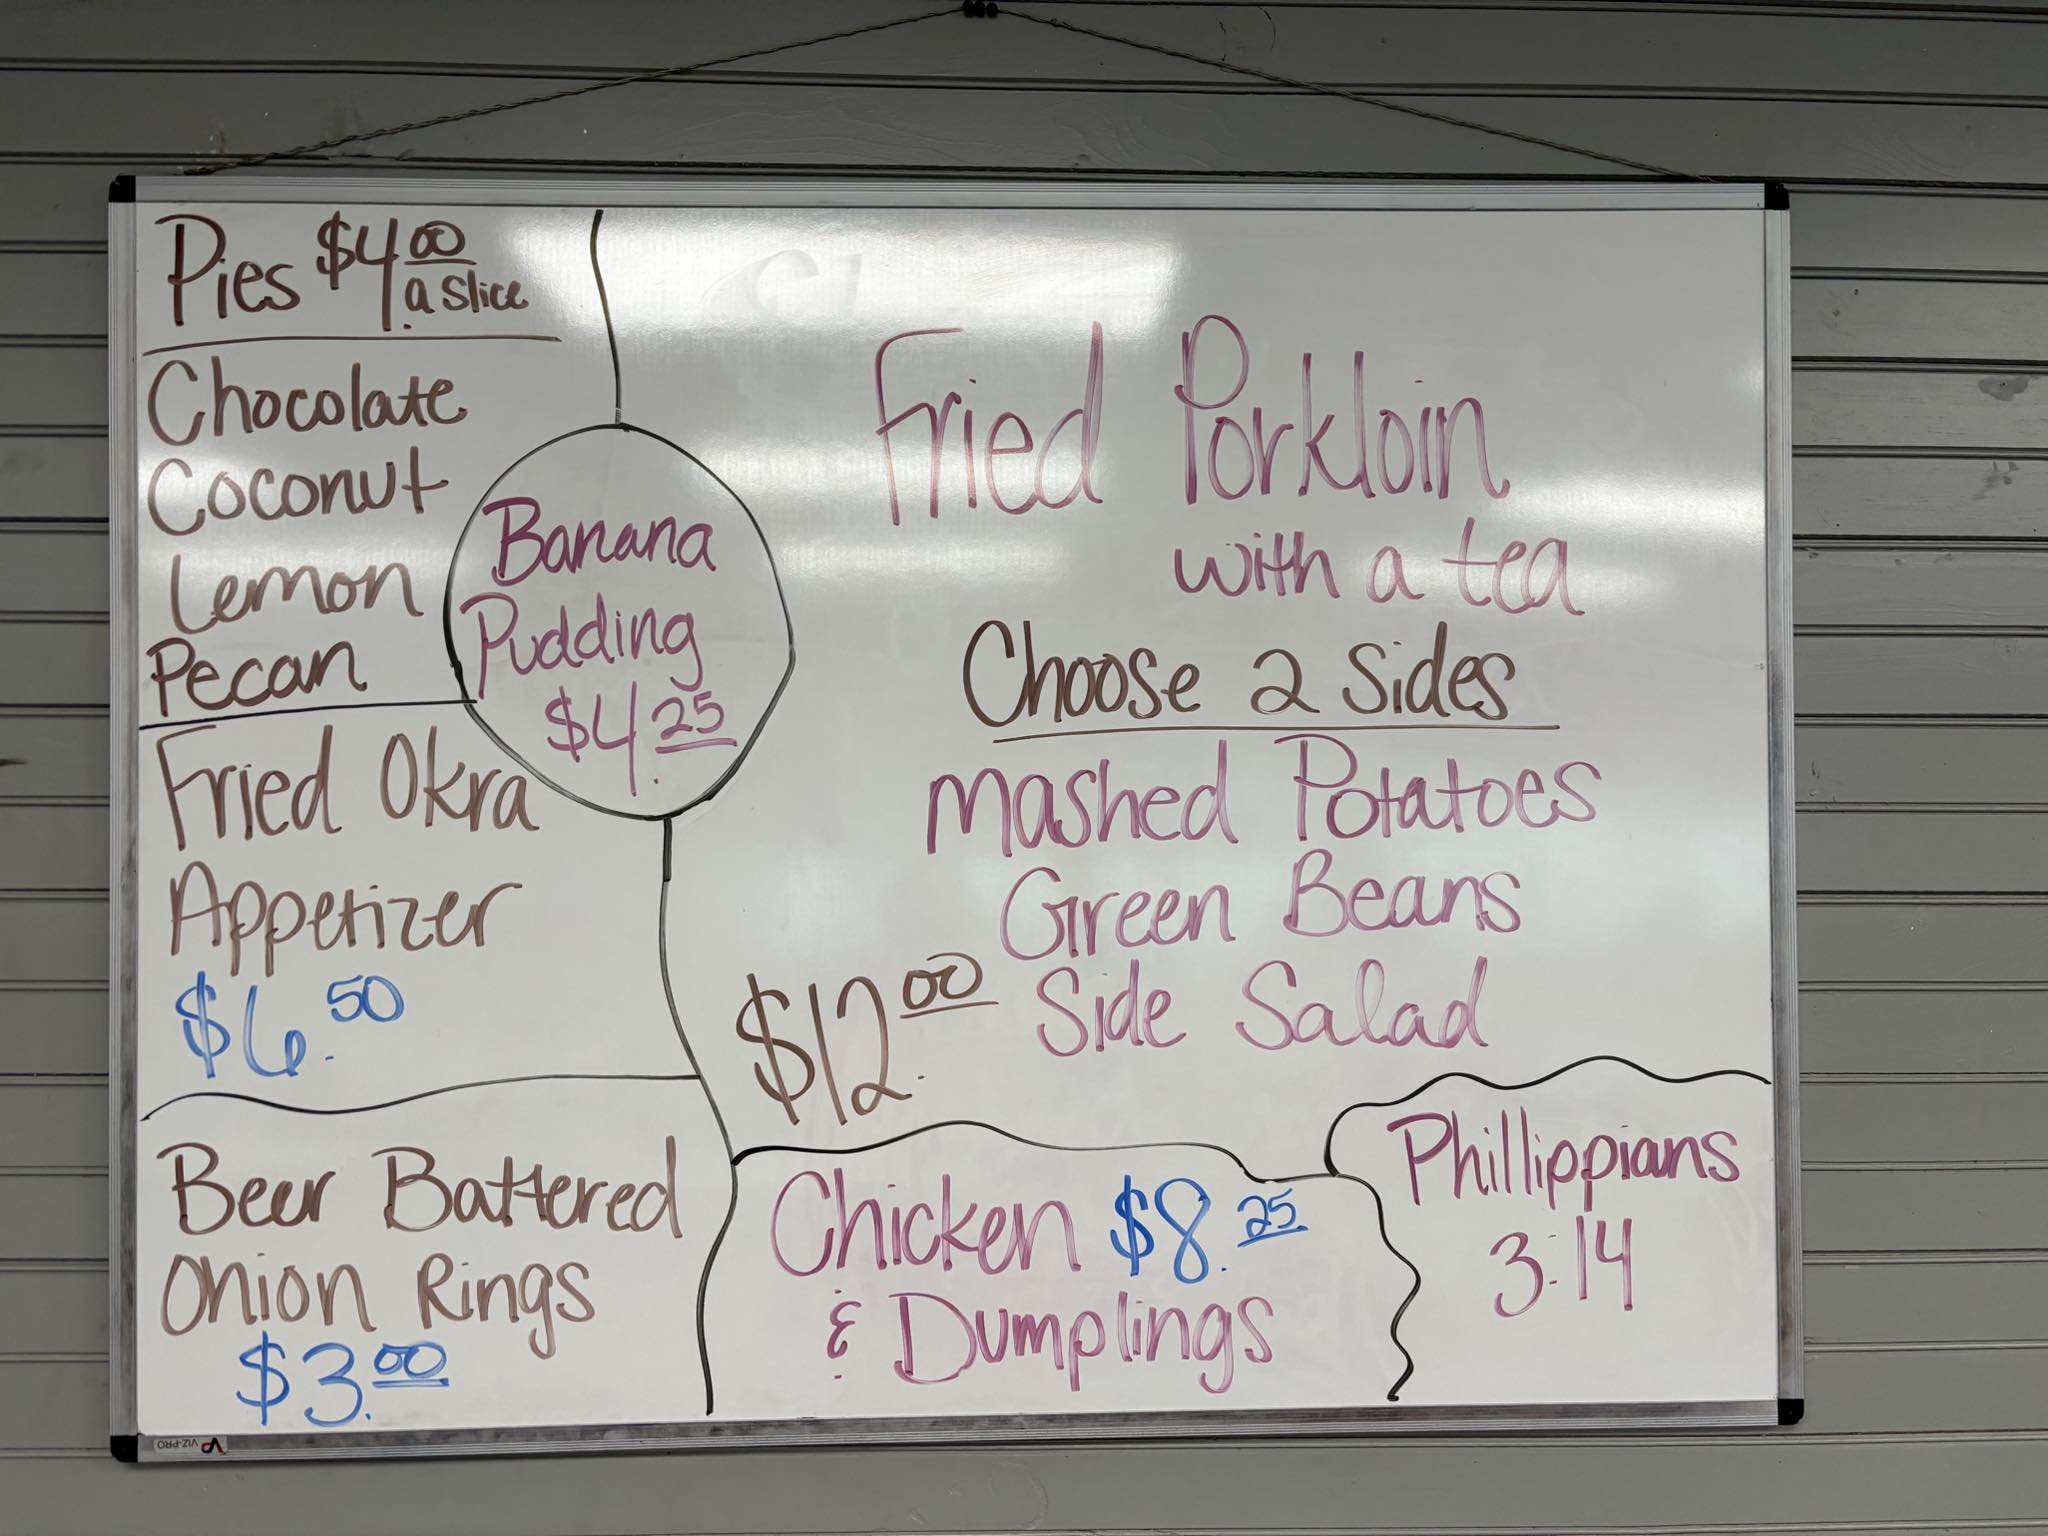 Pies $4.00
a slice
Chocolate
Coconut
Lemon
Pecan
Banana
Pudding
$4.25
Fried Okra
Appetizer
$6.50
Beer Battered
Onion Rings
$3.00
Fried Porkloin
with a tea
Choose 2 sides
Mashed Potatoes
Green Beans
Side Salad
$12.00
Chicken $8.25
& Dumplings
Phillippians
3:14
VIZ-PRO